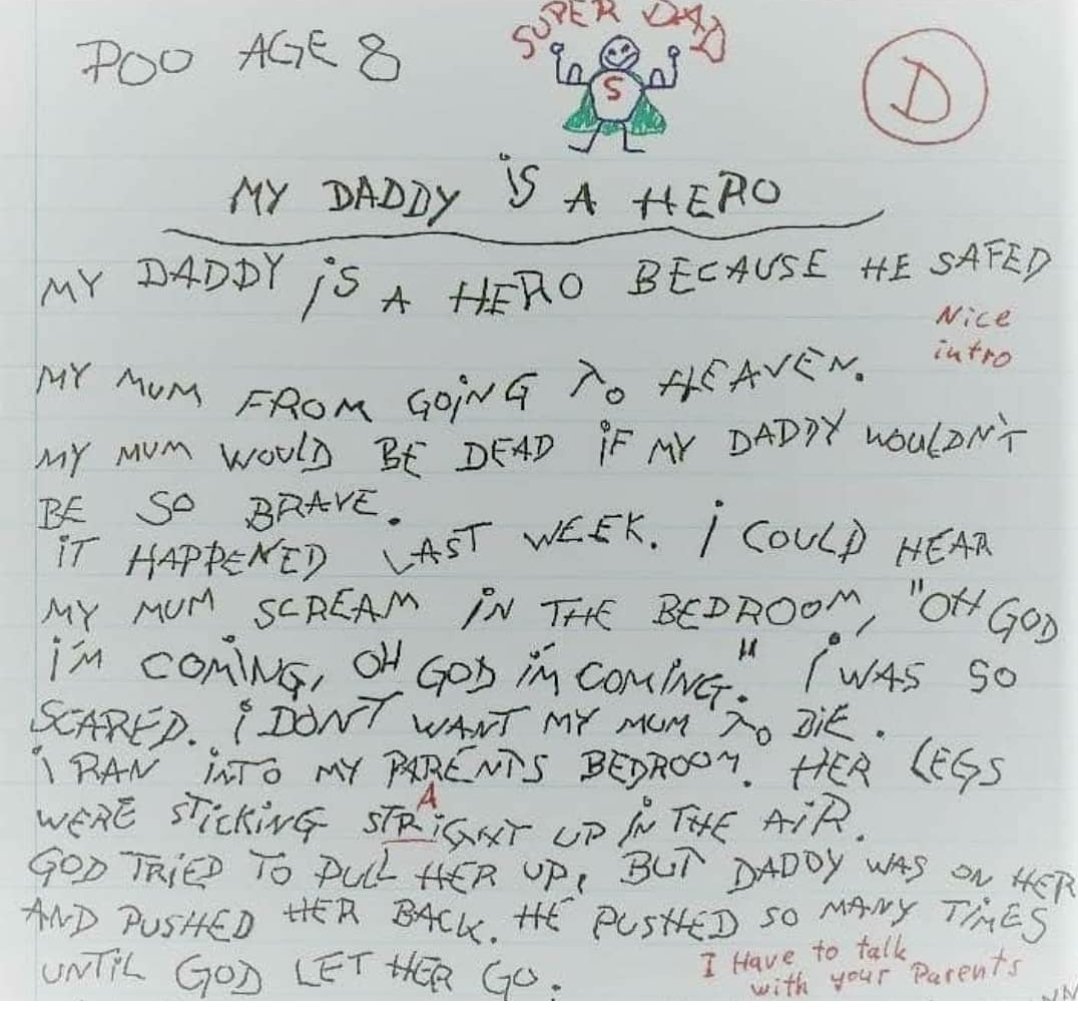 SUPER DAD
POO AGE 8
S
D
MY DADDY iS A HERO
MY DADDY iS A HERO BECAUSE HE SAFED
Nice
intro
MY MUM FROM GOiNG TO HEAVEN.
MY MUM WOULD BE DEAD iF MY DADDY WOULDN'T
BE SO BRAVE.
iT HAPPENED LAST WEEK. i COULD HEAR
MY MUM SCREAM iN THE BEDROOM, "OH GOD
i'M COMiNG, OH GOD i'M COMiNG." i WAS SO
SCARED. i DON'T WANT MY MUM TO DiE.
i RAN iNTO MY PARENTS BEDROOM. HER LEGS
A
WERE STiCKiNG STRiGHT UP iN THE AiR.
GOD TRiED TO PULL HER UP, BUT DADDY WAS ON HER
AND PUSHED HER BACK. HE PUSHED SO MANY TiMES
UNTiL GOD LET HER GO.
I Have to talk
with your Parents